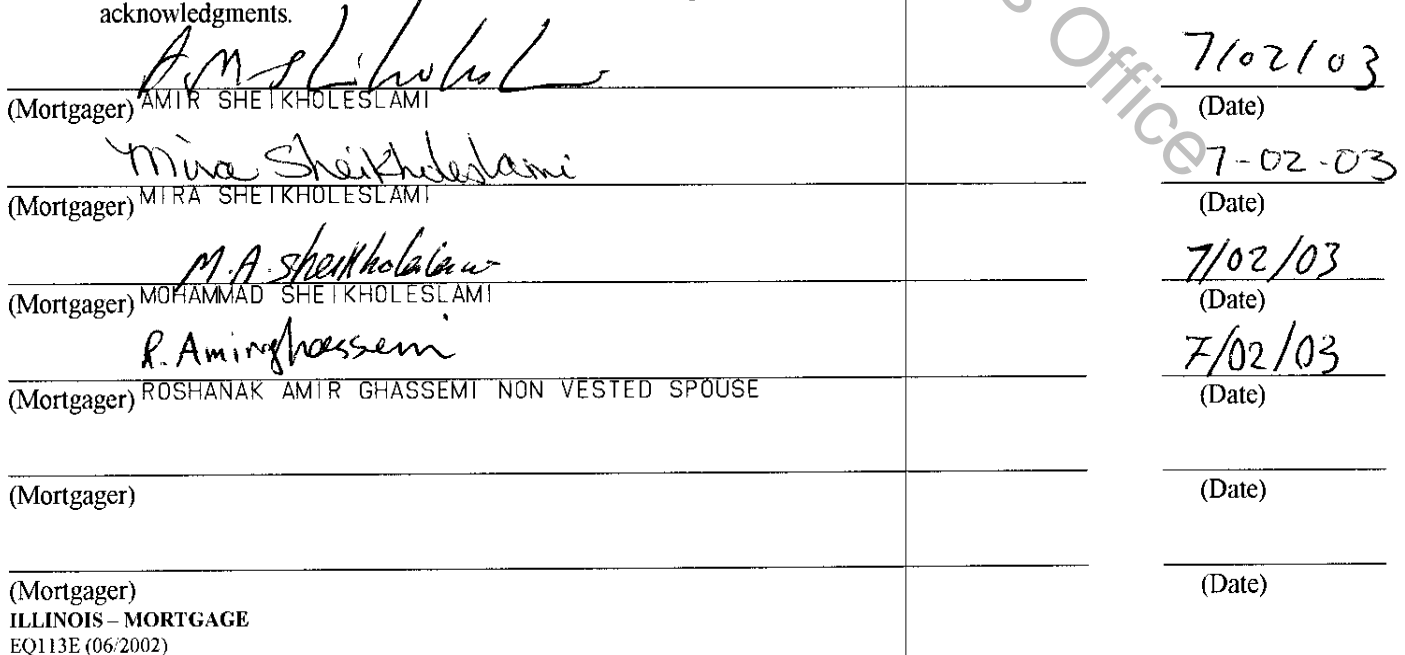 acknowledgments.
s Office
A M Sheikholesl 7/02/03
(Mortgager) AMIR SHEIKHOLESLAMI (Date)
Mira Sheikholeslami 7-02-03
(Mortgager) MIRA SHEIKHOLESLAMI (Date)
M.A. Sheikholeslami 7/02/03
(Mortgager) MOHAMMAD SHEIKHOLESLAMI (Date)
R. Amirghassemi 7/02/03
(Mortgager) ROSHANAK AMIR GHASSEMI NON VESTED SPOUSE (Date)
(Mortgager) (Date)
(Mortgager) (Date)
ILLINOIS – MORTGAGE
EQ113E (06/2002)